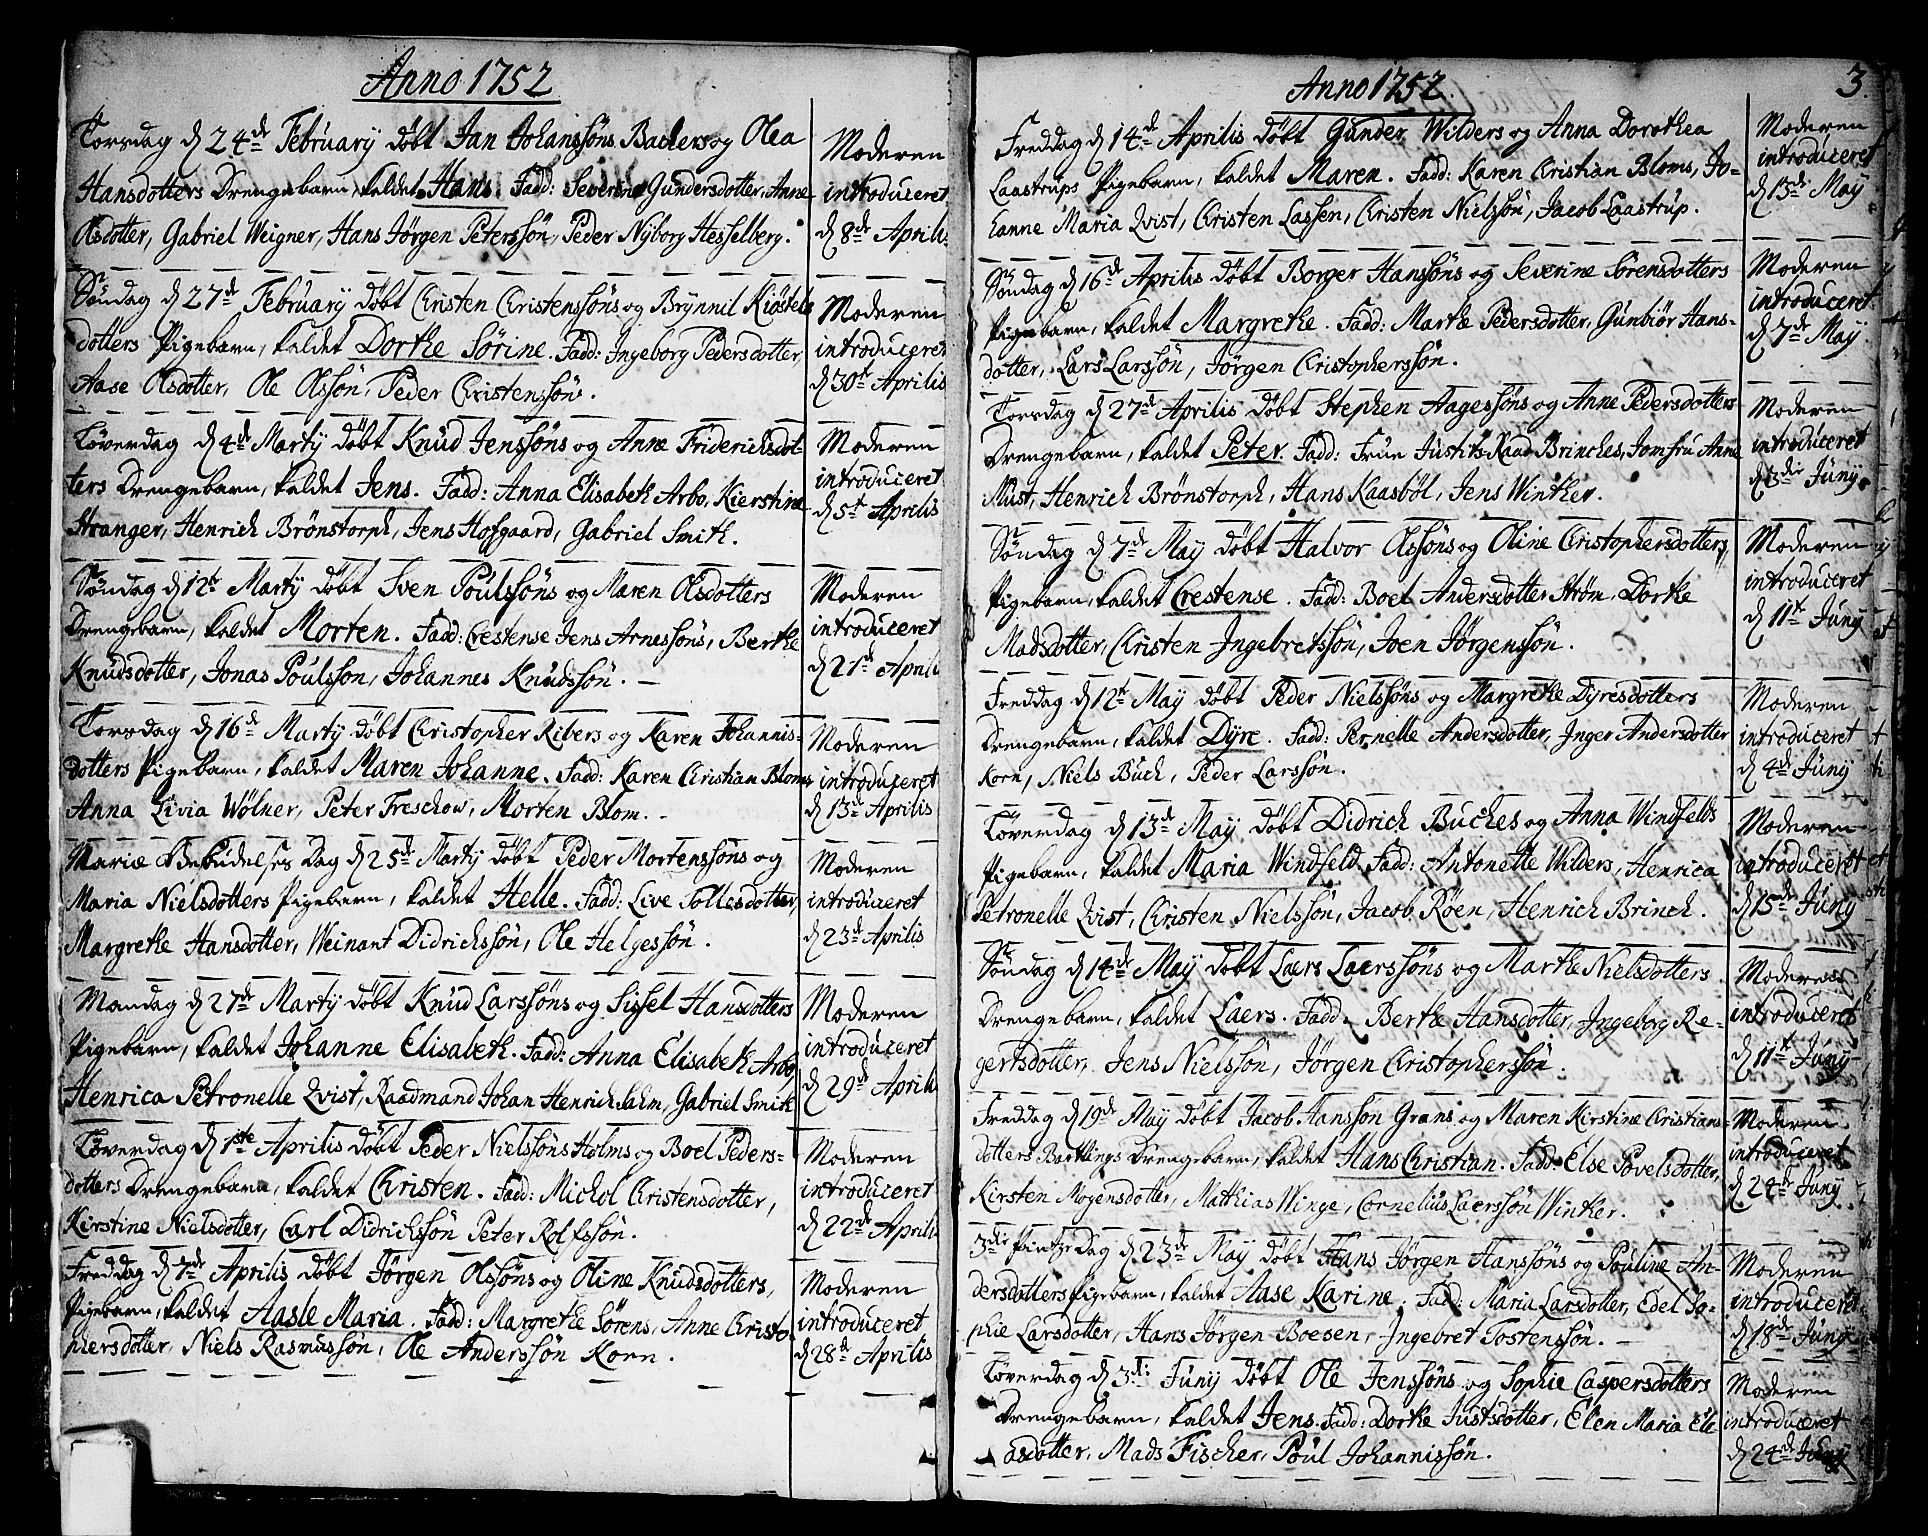 Anno 1752
Torsdag d 24de February døbt Jan Johanssøns Backers og Olea
Hansdotters Drengebarn, kaldet Hans. Fadd: Severine Gundersdotter, Anne
Olsdotter, Gabriel Weigner, Hans Jørgen Peterssøn, Peder Nyborg Hesselberg.
Moderen
introduceret
d 8de Aprilis
Søndag d 27de February døbt Christen Christenssøns og Brynnil Kiøstels
dotters Pigebarn, kaldet Dorthe Sørine. Fadd: Ingeborg Pedersdotter,
Aase Olsdotter, Ole Olssøn, Peder Christenssøn.
Moderen
introduceret
d 30te Aprilis
Løverdag d 4de Martÿ døbt Knud Jenssøns og Anne Friderichsdot-
ters Drengebarn, kaldet Jens. Fadd: Anna Elisabeth Arbo, Kierstine
Stranger, Henrich Brønstorph, Jens Hofgaard, Gabriel Smith.
Moderen
introduceret
d 5te Aprilis
Søndag d 12te Martÿ døbt Sven Poulssøns og Maren Olsdotters
Drengebarn, kaldet Morten. Fadd: Crestense Jens Arnessøns, Berthe
Knudsdotter, Jonas Poulsson, Johannes Knudssøn.
Moderen
introduceret
d 21de April
Torsdag d 16de Martÿ døbt Christopher Ribers og Karen Johannis-
dotters Pigebarn, kaldet Maren Johanne. Fadd: Karen Christian Bloms,
Anna Livia Wølner, Peter Treschow, Morten Blom.
Moderen
introduceret
d 13de Aprilis
Mariæ Bebudelses Dag d 25de Martÿ døbt Peder Mortenssøns og
Maria Nielsdotters Pigebarn, kaldet Helle. Fadd: Live Tollesdotter,
Margrethe Hansdotter, Weinant Didrichssøn, Ole Helgessøn.
Moderen
introduceret
d 23de Aprilis
Mandag d 27de Martÿ døbt Knud Larssøns og Sissel Hansdotters
Pigebarn, kaldet Johanne Elisabeth. Fadd: Anna Elisabeth Arbo,
Henrica Petronelle Qvist, Raadmand Johan Henrich Salm, Gabriel Smith
Moderen
introduceret
d 29de Aprili
Løverdag d 1ste Aprilis døbt Peder Nielssøns Holms og Boel Peders-
dotters Drengebarn, kaldet Christen. Fadd: Michol Christensdotter,
Kirstine Nielsdotter, Carl Didrichssøn Peter Rolfssøn.
Moderen
introduceret
d 22de Aprili
Freddag d 7de Aprilis døbt Jørgen Olssøns og Oline Knudsdotters,
Pigebarn, kaldet Aasle Maria. Fadd: Margrethe Sørens, Anne Christo-
phersdotter, Niels Rasmussøn, Ole Anderssøn Korn.
Moderen
introduceret
d 28de Aprilis
Anno 1752.
3
Freddag d 14de Aprilis døbt Gunder Wilders og Anna Dorothea
Laastrups Pigebarn, kaldet Maren. Fadd: Karen Christian Bloms, Jo-
hanne Maria Qvist, Christen Lassen, Christen Nielssøn, Jacob Laastrup.
Moderen
introduceret
d 15de May
Søndag d 16de Aprilis døbt Borger Hanssøns og Severine Sørensdotters
Pigebarn, kaldet Margrethe. Fadd: Marthe Pedersdotter, Gunbiør Hans-
dotter, Lars Larssøn, Jørgen Christopherssøn.
Moderen
introduceret
d 7de May
Torsdag d 27de Aprilis døbt Stephen Aagessøns og Anne Pedersdotters
Drengebarn, kaldet Peter. Fadd: Frue Justits-Raad Brinches, Jomfru Anne
Must, Henrich Brønstorph, Hans Kaasbøl, Jens Winther.
Moderen
introduceret
Junÿ.
Søndag d 7de May døbt Halvor Olssøns og Oline Christophersdotters,
Pigebarn, kaldet Crestense. Fadd: Boel Andersdotter Strøm, Dorthe
Madsdotter, Christen Ingebretssøn, Iven Jørgenssøn.
Moderen
introduceret
d 11te Junÿ
Freddag d 12te May døbt Peder Nielssøns og Margrethe Dyresdotters
Drengebarn, kaldet Dyre. Fadd: Pernelle Andersdotter, Inger Andersdotter
Korn, Niels Buch, Peder Larssøn.
Moderen
introduceret
d 4de Junÿ
Løverdag d 13de May døbt Didrich Buches og Anna Windfelds
Pigebarn, kaldet Maria Windfeld. Fadd: Antonette Wilders, Henrica
Petronelle Qvist, Christen Nielssøn, Jacob Røen, Henrich Brinch.
Moderen
introduceret
d 15de Junÿ
Søndag d 14de May døbt Laers Laerssøns og Marthe Nielsdotters
Drengebarn, kaldet Laers. Fadd. Berthe Hansdotter, Ingeborg Re-
gertsdotter, Jens Nielssøn, Jørgen Christopherssøn.
Moderen
introduceret
d 11te Junÿ
Freddag d 19de May døbt Jacob Hanssøn Grans og Maren Kirstine Christians-
dotters Barthlings Drengebarn, kaldet Hans Christian. Fadd: Else Povelsdotter,
Kirsten Mogensdotter, Mathias Winge, Cornelius Laerssøn Winther.
Moderen
introduceret
d 24de Junÿ
3die Pintze Dag d 23de May døbt Hans Jørgen Hanssøns og Pouline An-
dersdotters Pigebarn, kaldet Aase Karine. Fadd: Maria Larsdotter, Edel So-
phie Larsdotter, Hans Jørgen Boesen, Ingebret Tostenssøn.
Moderen
introduceret
d 18de Junÿ
Løverdag d 3die Junÿ døbt Ole Jenssøns og Sophie Caspersdotters
Drengebarn, kaldet Jens. Fadd: Dorthe Justsdotter, Elen Maria Ela
asdotter, Mads Fischer, Poul Johannissøn.
Moderen
introduceret
d 24de Junÿ